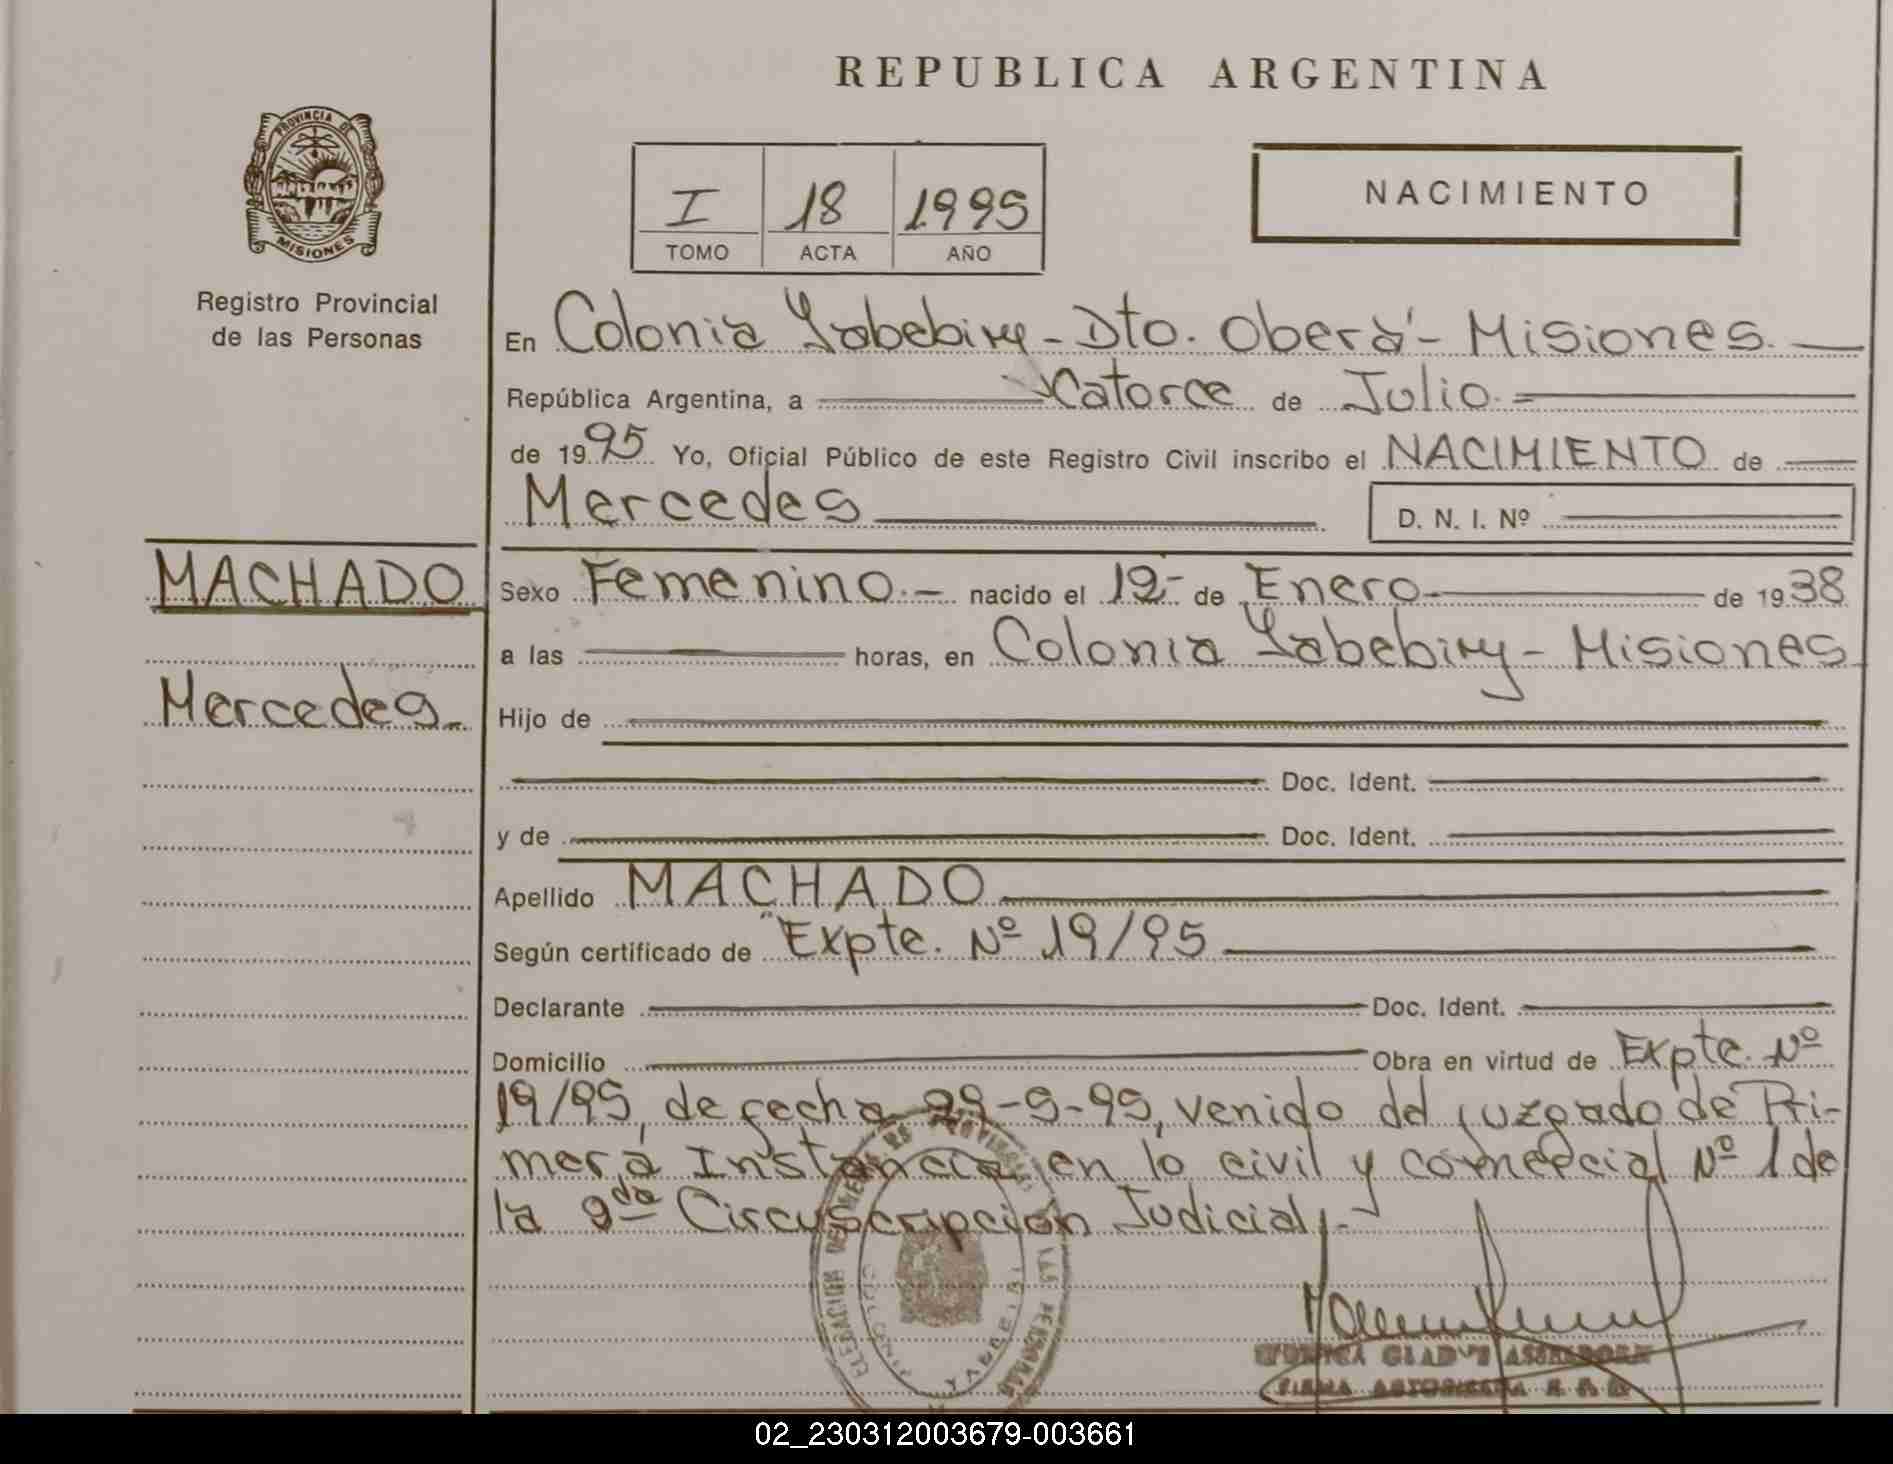 REPUBLICA ARGENTINA
PROVINCIA DE
MISIONES
Registro Provincial
de las Personas
I 18 1995
TOMO ACTA AÑO
NACIMIENTO
En Colonia Yabebiry - Dto. Oberá - Misiones.
República Argentina, a Catorce de Julio.
de 1995 Yo, Oficial Público de este Registro Civil inscribo el NACIMIENTO de
Mercedes D. N. I. Nº
MACHADO
Mercedes.
Sexo Femenino.- nacido el 12- de Enero.- de 1938
a las horas, en Colonia Yabebiry - Misiones
Hijo de
Doc. Ident.
y de Doc. Ident.
Apellido MACHADO
Según certificado de "Expte. Nº 19/95
Declarante Doc. Ident.
Domicilio Obra en virtud de Expte. Nº
19/95, de fecha venido del juzgado de Pri-
mera Instancia en lo civil y comercial Nº 1 de
la 2da Circuscripción Judicial.-
YABEBIRY
02_230312003679-003661